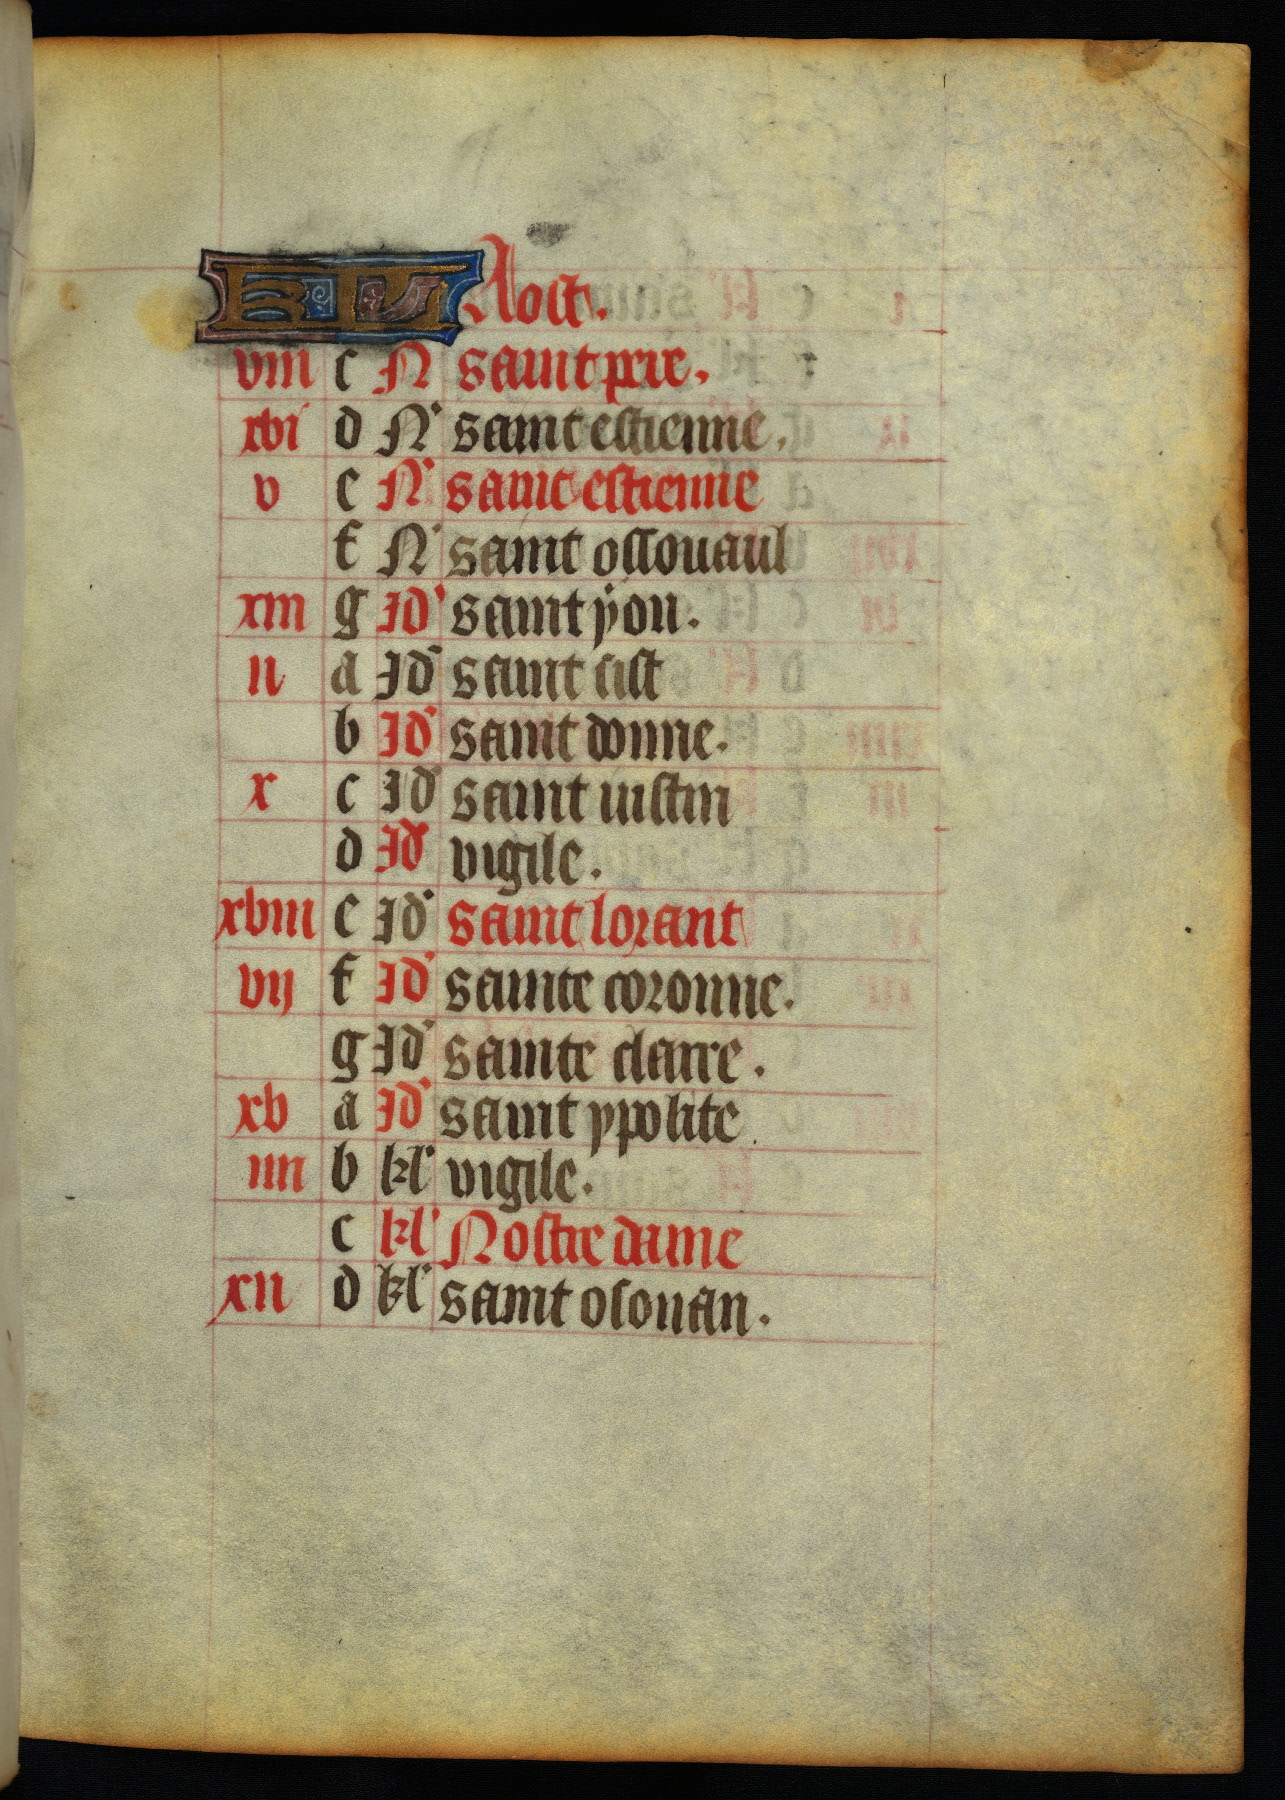 KL Aost.
viii c N saint pere.
xvi d N saint estienne.
v e N saint estienne
f N saint ossouaul
xiii g Id saint yon.
ii a Id saint sist
b Id saint donne.
x c Id saint iustin
d Id vigile.
xviii e Id saint lorant
vij f Id sainte coronne.
g Id sainte claire.
xv a Id saint ypolite.
iiii b kl vigile.
c kl Nostre dame
xii d kl saint osouan.